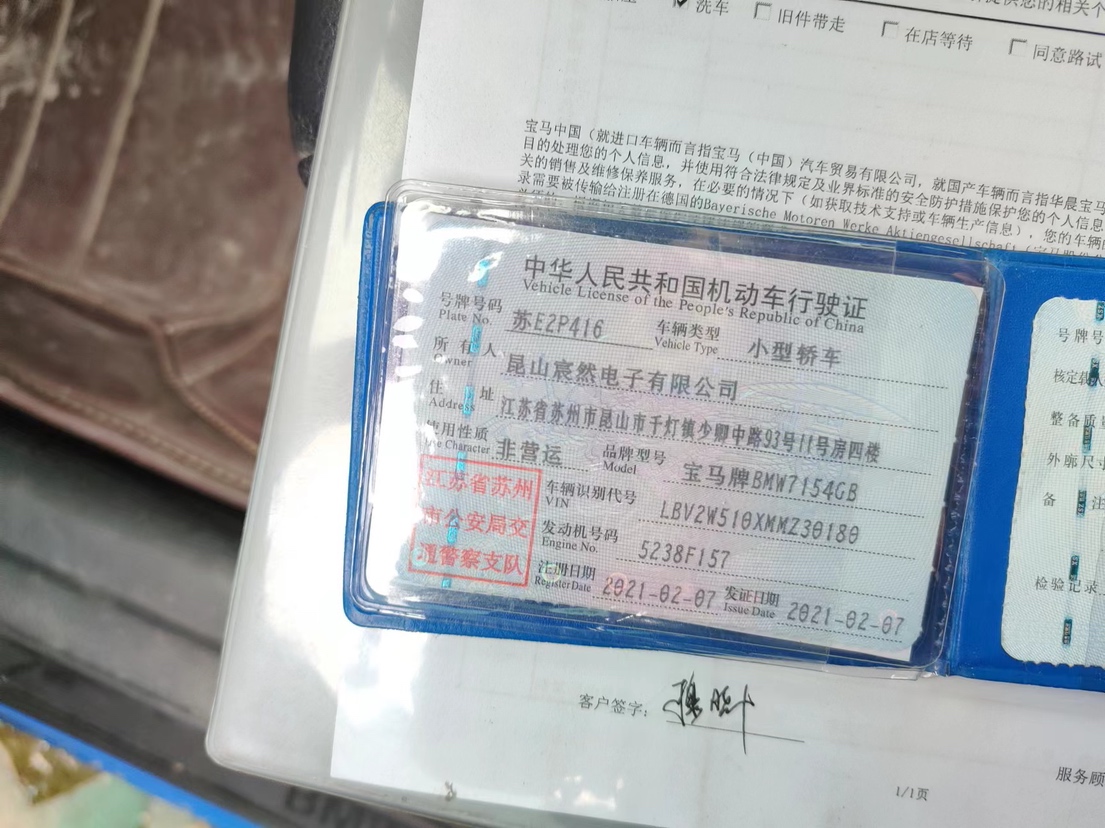 洗车 旧件带走 在店等待 同意路试
宝马中国（就进口车辆而言指宝马（中国）汽车贸易有限公司，就国产车辆而言指华晨宝马
目的处理您的个人信息，并使用符合法律规定及业界标准的安全防护措施保护您的个人信息
关的销售及维修保养服务，在必要的情况下（如获取技术支持或车辆生产信息），您的车辆
录需要被传输给注册在德国的Bayerische Motoren Werke Aktiengesellschaft
中华人民共和国机动车行驶证
Vehicle License of the People's Republic of China
号牌号码 苏E2P416 车辆类型 小型轿车
Plate No. Vehicle Type
所有人 昆山宸然电子有限公司
Owner
住址 江苏省苏州市昆山市千灯镇少卿中路93号11号房四楼
Address
使用性质 非营运 品牌型号 宝马牌BMW7154GB
Use Character Model
江苏省苏州
市公安局交
通警察支队
车辆识别代号 LBV2W510XMMZ30180
VIN
发动机号码 5238F157
Engine No.
注册日期 2021-02-07 发证日期 2021-02-07
Register Date Issue Date
号牌号
核定载人
整备质量
外廓尺寸
备 注
检验记录
客户签字：
服务顾
1/1页